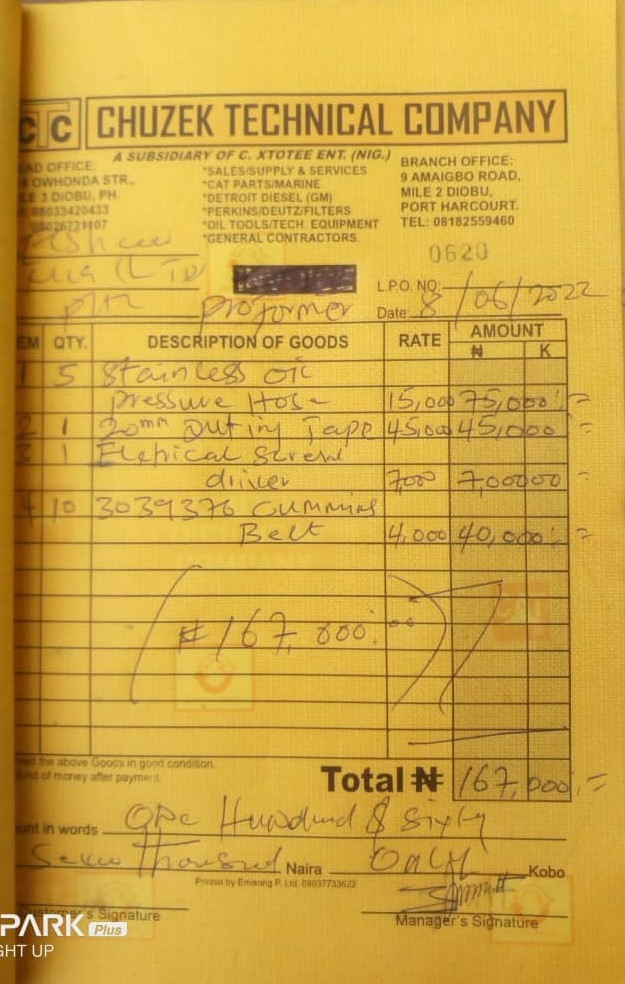 CTC CHUZEK TECHNICAL COMPANY
A SUBSIDIARY OF C. XTOTEE ENT. (NIG.)
EAD OFFICE:
OWHONDA STR.,
LE 3 DIOBU, PH.
08033420433
08026731107
*SALES/SUPPLY & SERVICES
*CAT PARTS/MARINE
*DETROIT DIESEL (GM)
*PERKINS/DEUTZ/FILTERS
*OIL TOOLS/TECH. EQUIPMENT
*GENERAL CONTRACTORS.
BRANCH OFFICE:
9 AMAIGBO ROAD,
MILE 2 DIOBU,
PORT HARCOURT.
TEL: 08182559460
0620
LTD
L.P.O. NO:
PH proformer
Date: 8/06/2022
EM QTY. DESCRIPTION OF GOODS RATE AMOUNT
₦ K
1 5 Stainless oil
pressure Hose 15,000 75,000:=
2 1 20mm Duting Tape 45,000 45,000 =
3 1 Eletrical Screw
driver 7,000 7,000 00 =
4 10 3039376 Cummins
Belt 4,000 40,000:=
₦167,000:00
ved the above Goods in good condition.
fund of money after payment.
Total ₦ 167,000:=
unt in words One Hundred & Sixty
Seven Thousand Naira Only Kobo
Printed by Emisong P. Ltd. 08037733622
ustomer's Signature
Manager's Signature
PARK Plus
GHT UP